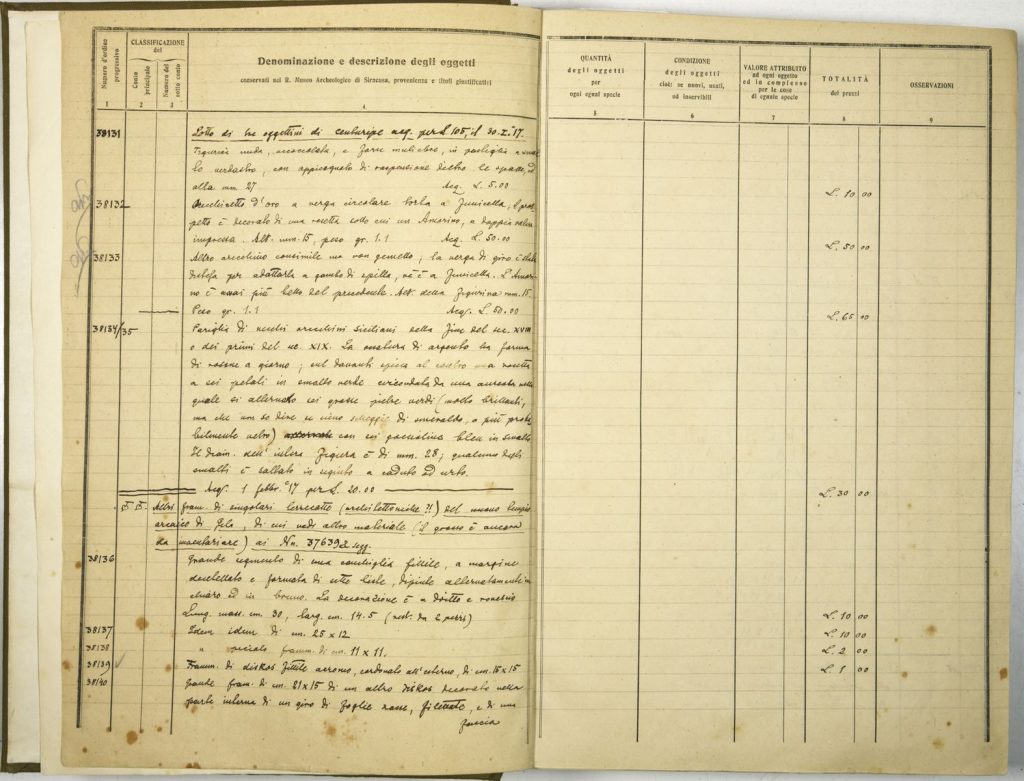 Numero d'ordine progressivo
CLASSIFICAZIONE del
Conto principale
Numero del sotto conto
Denominazione e descrizione degli oggetti
conservati nel R. Museo Archeologico di Siracusa, provenienza e titoli giustificativi
QUANTITÀ degli oggetti per ogni egual specie
CONDIZIONE degli oggetti cioè: se nuovi, usati, od inservibili
VALORE ATTRIBUTO ad ogni oggetto ed in complesso per le cose di eguale specie
TOTALITÀ dei prezzi
OSSERVAZIONI
1 2 3 4 5 6 7 8 9
38131 Lotto di tre oggettini di Centuripe acq. per L 105, il 30.I.°17.
Figurina nuda, accoccolata, e forse muliebre, in pasteglia a smal
to verdastro, con appiccagnolo di sospensione dietro le spalle, ed
alta mm. 27 Acq. L. 5.00 L. 10 00
38132 Orecchinetto d'oro a verga circolare, il pros
petto è decorato di una rosetta sotto cui un Amorino, a doppia valva
impressa. Alt. mm. 15, peso gr. 1.1 Acq. L. 50.00 L. 50 00
38133 Altro orecchino consimile ma non gemello; la verga di giro è stata
distesa per adattarla a gambo di spilla, nè è a funicella. L'Amori
no è assai più bello del precedente. Alt. della figurina mm. 15.
Peso gr. 1.1 Acq. L. 50.00 L. 65 00
38134/35 Pariglia di vecchi orecchini siciliani della fine del sec. XVIII
o dei primi del sec. XIX. La ossatura di argento ha forma
di rosone a giorno; sul davanti spicca al centro una rosetta
a sei petali in smalto verde circondata da una aureola nella
quale si alternano sei grosse pietre verdi (molto brillanti,
ma che non so dire se sieno schegge di smeraldo, o più proba
bilmente vetro) con sei bleu in smalto
Il diam. dell'intera figura è di mm. 28; qualcuno degli
smalti è saltato in seguito a caduta od urto.
Acq. 1 febbr.° 17 per L. 20.00 L. 30 00
Altri fram. di singolari terrecotte (architettoniche ?!) del nuovo tempio
arcaico di Gela, di cui vedi altro materiale (il grosso è ancora
da inventariare) ai Nn. 37639 e segg.
38136 Grande segmento di una conchiglia fittile, a margine
dentellato e formata di sette liste, dipinte alternatamente in
chiaro ed in bruno. La decorazione è a dritto e rovescio
Lung. mass. cm. 30, larg. cm. 14.5 (rest. da 2 pezzi) L. 10 00
38137 Idem idem di cm. 25 x 12 L. 10 00
38138 " piccolo framm. di cm. 11 x 11. L. 2 00
38139 Framm. di diskos fittile, cordonato all'esterno, di cm. 15 x 15 L. 1 00
38140 Grande fram. di cm. 21 x 15 di un altro diskos decorato nella
parte interna di un giro di foglie rosse, filettate, e di una
fascia